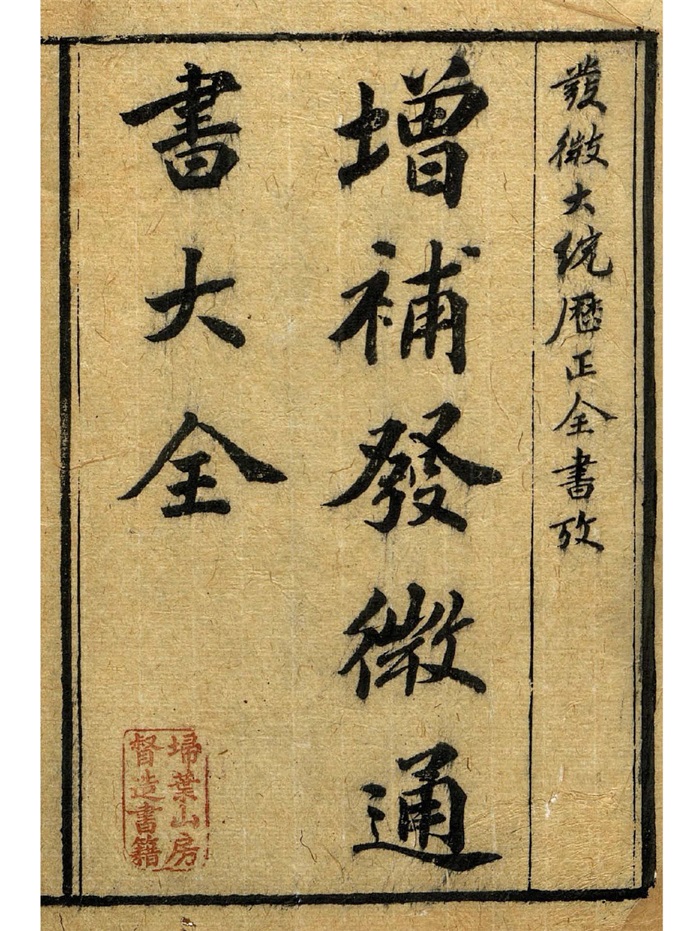 發微大統歷正全書攷
增補發微通
書大全
埽葉山房
督造書籍